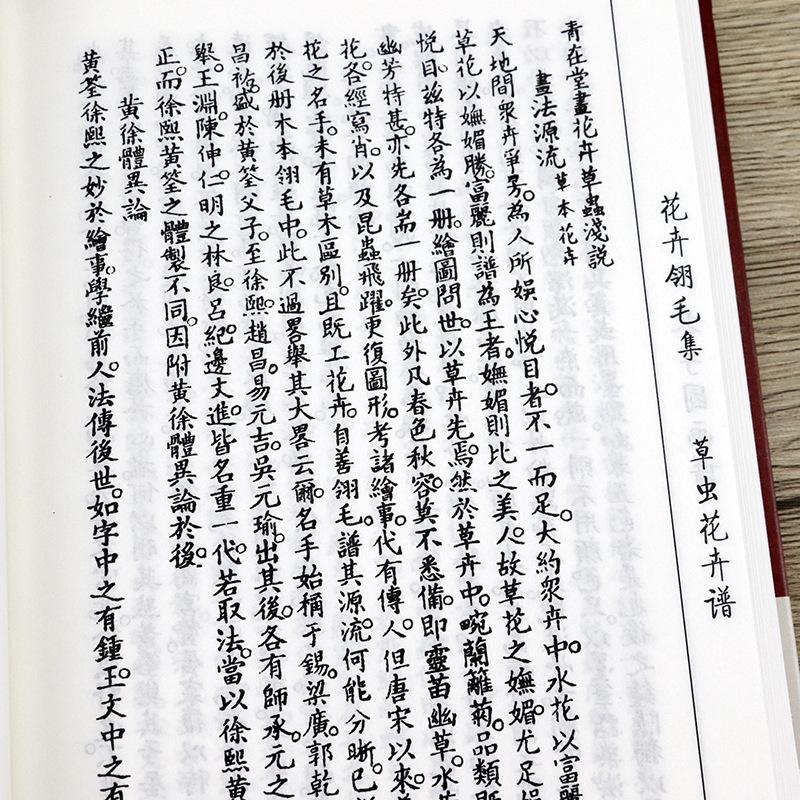 花卉翎毛集 草虫花卉谱
青在堂畫花卉草蟲淺說
畫法源流 草本花卉
天地間衆卉爭芳。為人所娛心悅目者。不一而足。大約衆卉中。水花以富麗
草花以嫵媚勝。富麗則譜為王者。嫵媚則比之美人。故草花之嫵媚。尤足娛
悅目。茲特各為一册。繪圖問世。以草卉先焉。然於草中。畹蘭籬菊。品類既
幽芳特甚。亦先各耑一册矣。此外凡春色秋容。莫不悉備。即靈苗幽草。水
花。各經寫肖。以及昆蟲飛躍。更復圖形。考諸繪事。代有傳人。但唐宋以來
花之名手。未有草木區別。且既工花卉。自善翎毛。譜其源流。何能分晰。已
於後册木本翎毛中。此不過畧舉其大畧云爾。名手始稱于錫。梁廣。郭乾
昌祐。盛於黄筌父子。至徐熙。趙昌。易元吉。吳元瑜。出其後。各有師承。元之
舉。王淵。陳仲仁。明之林良。呂紀。邊文進。皆名重一代。若取法。當以徐熙黄
正。而徐熙黄筌之體製不同。因附黄徐體異論於後。
黄徐體異論
黄筌徐熙之妙於繪事。學繼前人。法傳後世。如字中之有鍾王。文中之有